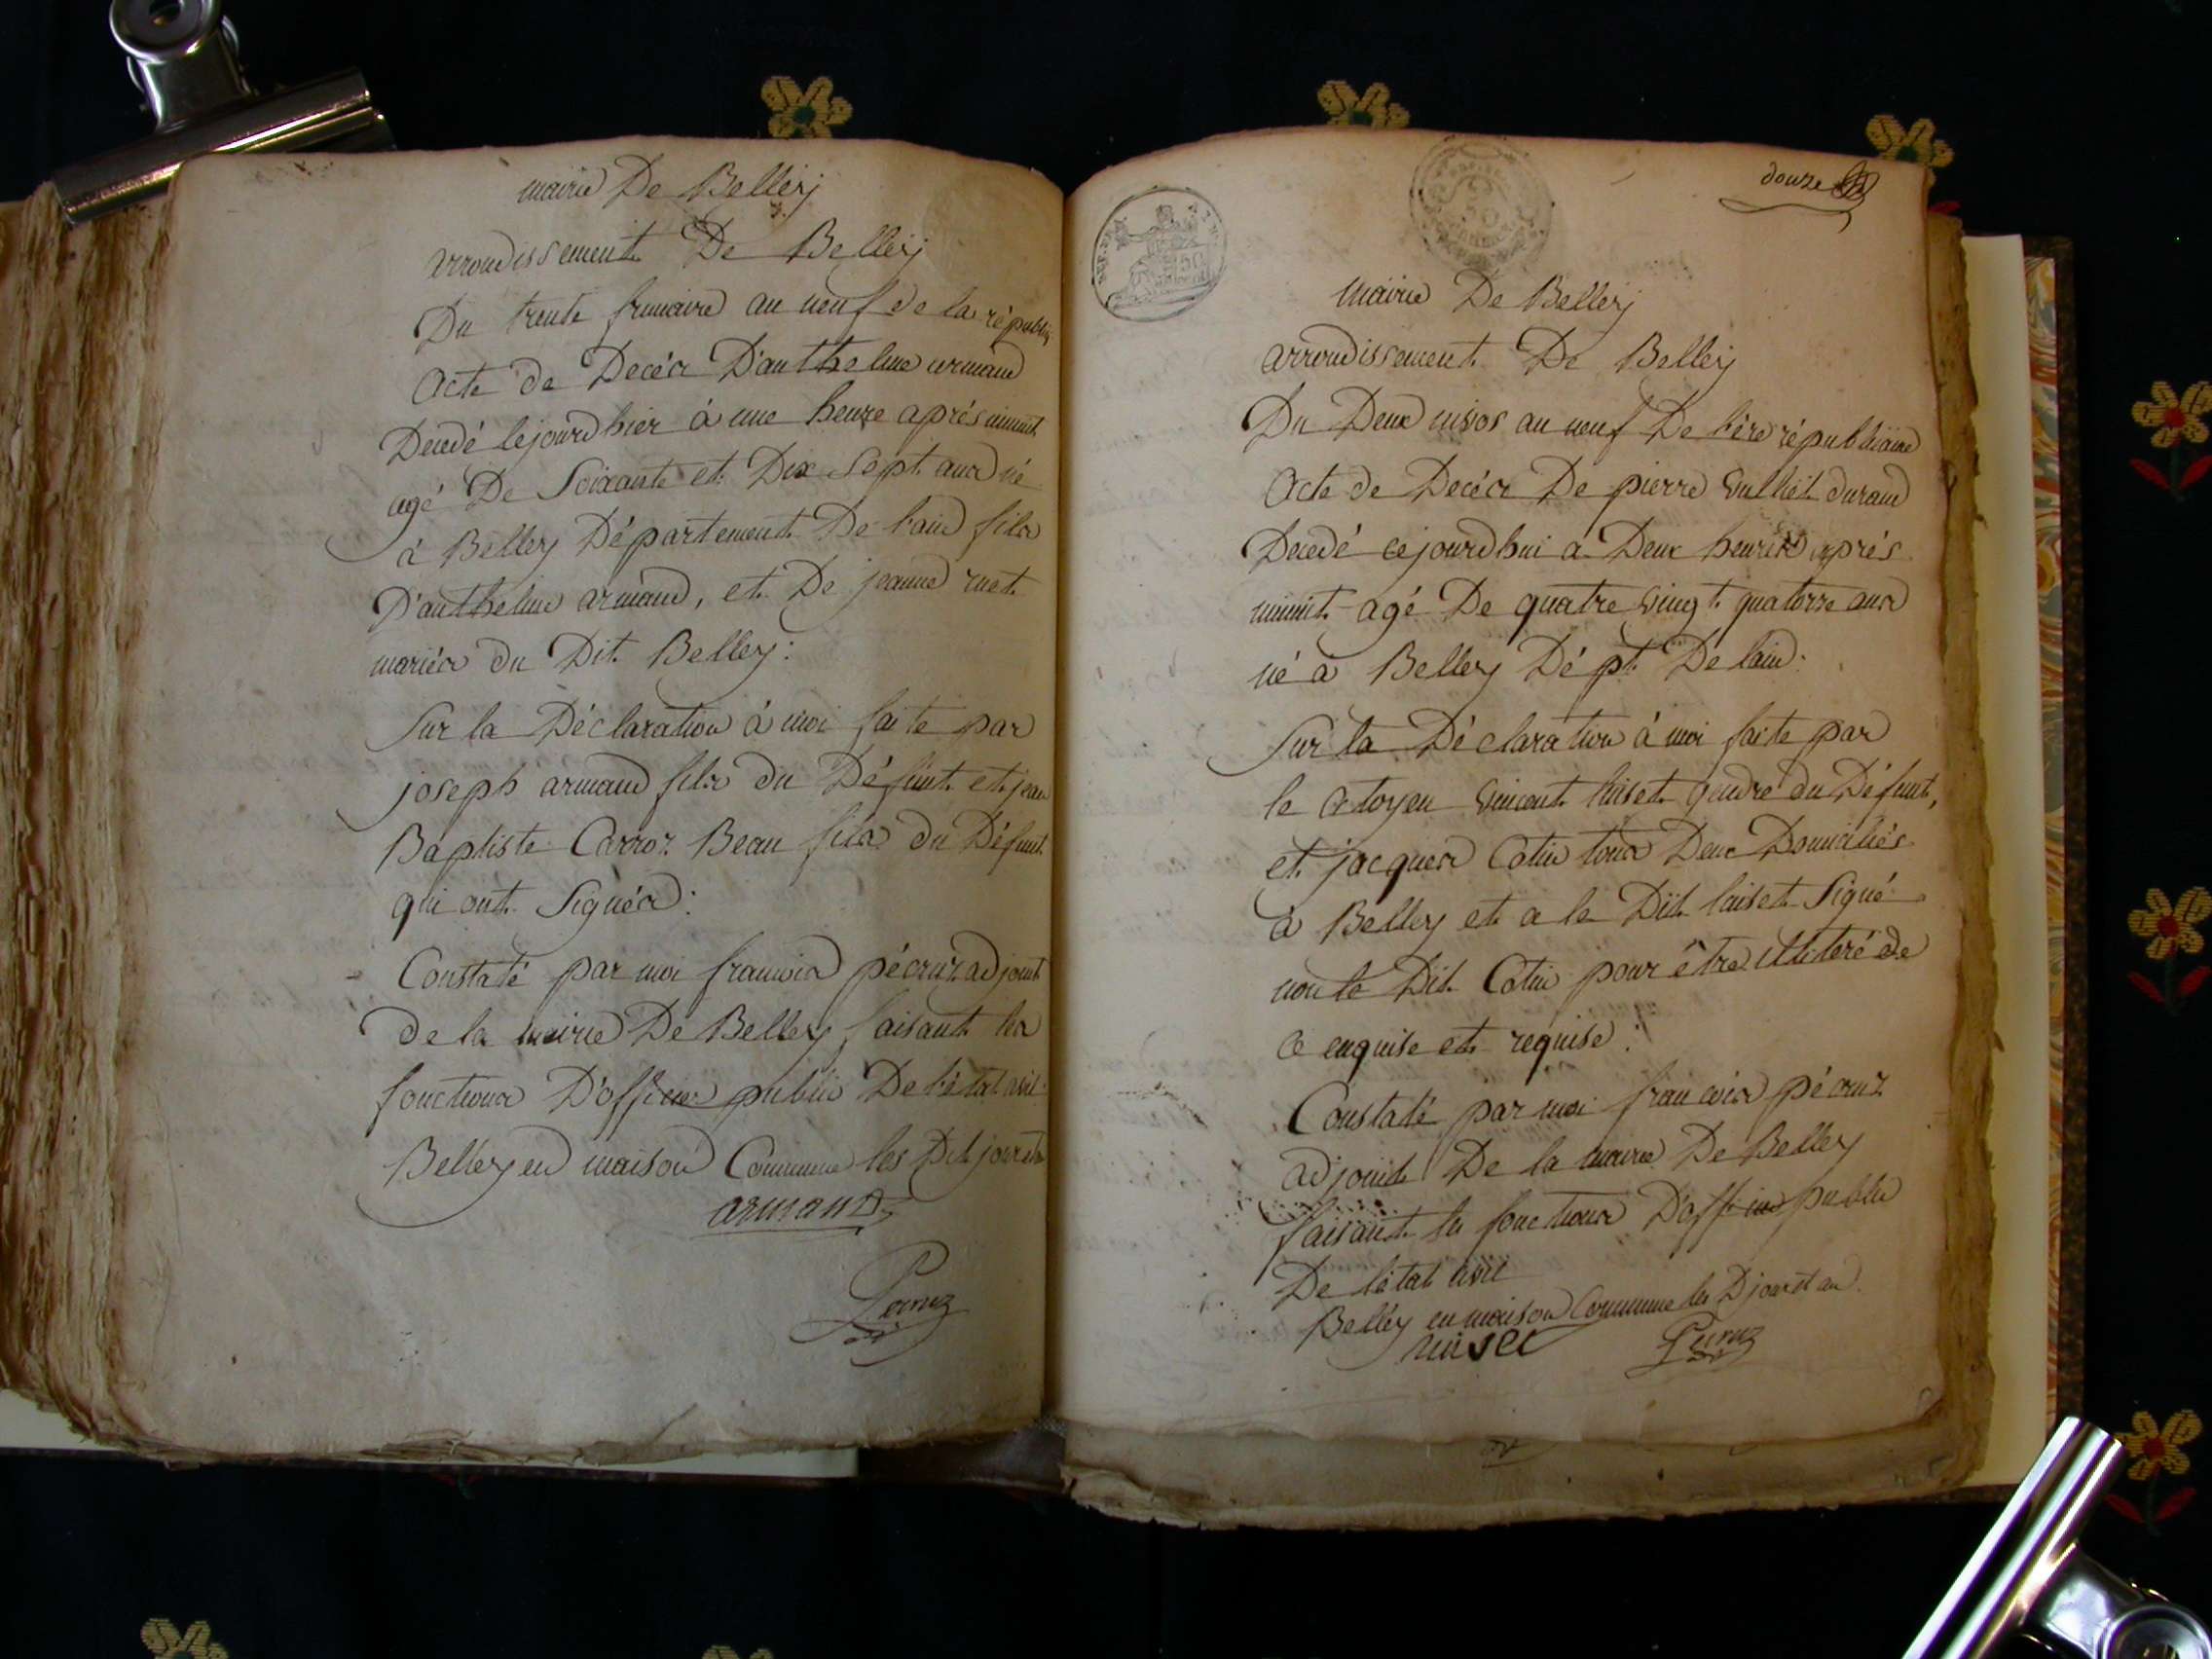 mairie De Belley
arrondissement De Belley
Du trente frimaire an neuf de la républiq
Acte de Decés D'anthelme armand
Decedé lejourd'hier à une heure aprés minuit
agé De Soixante et Dix Sept ans né
à Belley Département De l'ain fils
D'anthelme armand, et De jeanne ruet
mariés du Dit Belley :
Sur la Déclaration à moi faite par
joseph armand fils du Défunt et jean
Baptiste Carroz Beau fils du Défunt
qui ont Signés :
Constaté par moi francois pécruz adjoint
de la mairie De Belley faisant les
fonctions D'officier public De l'état civil
Belley en maison Commune les Dit jour et an
armand
Pecruz
douze
mairie De Belley
arrondissement De Belley
Du Deux nivos an neuf De l'ère républicaine
Acte de Decés De pierre Vulliet durand
Decedé cejourd'hui a Deux heures aprés
minuit agé De quatre vingt quatorze ans
né à Belley Dépt. De l'ain :
Sur la Déclaration à moi faite par
le Citoyen Vincent gendre du Défunt,
et jacques Cotin tous Deux Domiciliés
à Belley et a le Dit Signé
non le Dit Cotin pour être illiteré de
ce enquise et requise :
Constaté par moi francois pécruz
adjoint De la mairie De Belley
faisant les fonctions D'officier public
De l'état civil
Belley en maison Commune les D jour et an
Pecruz